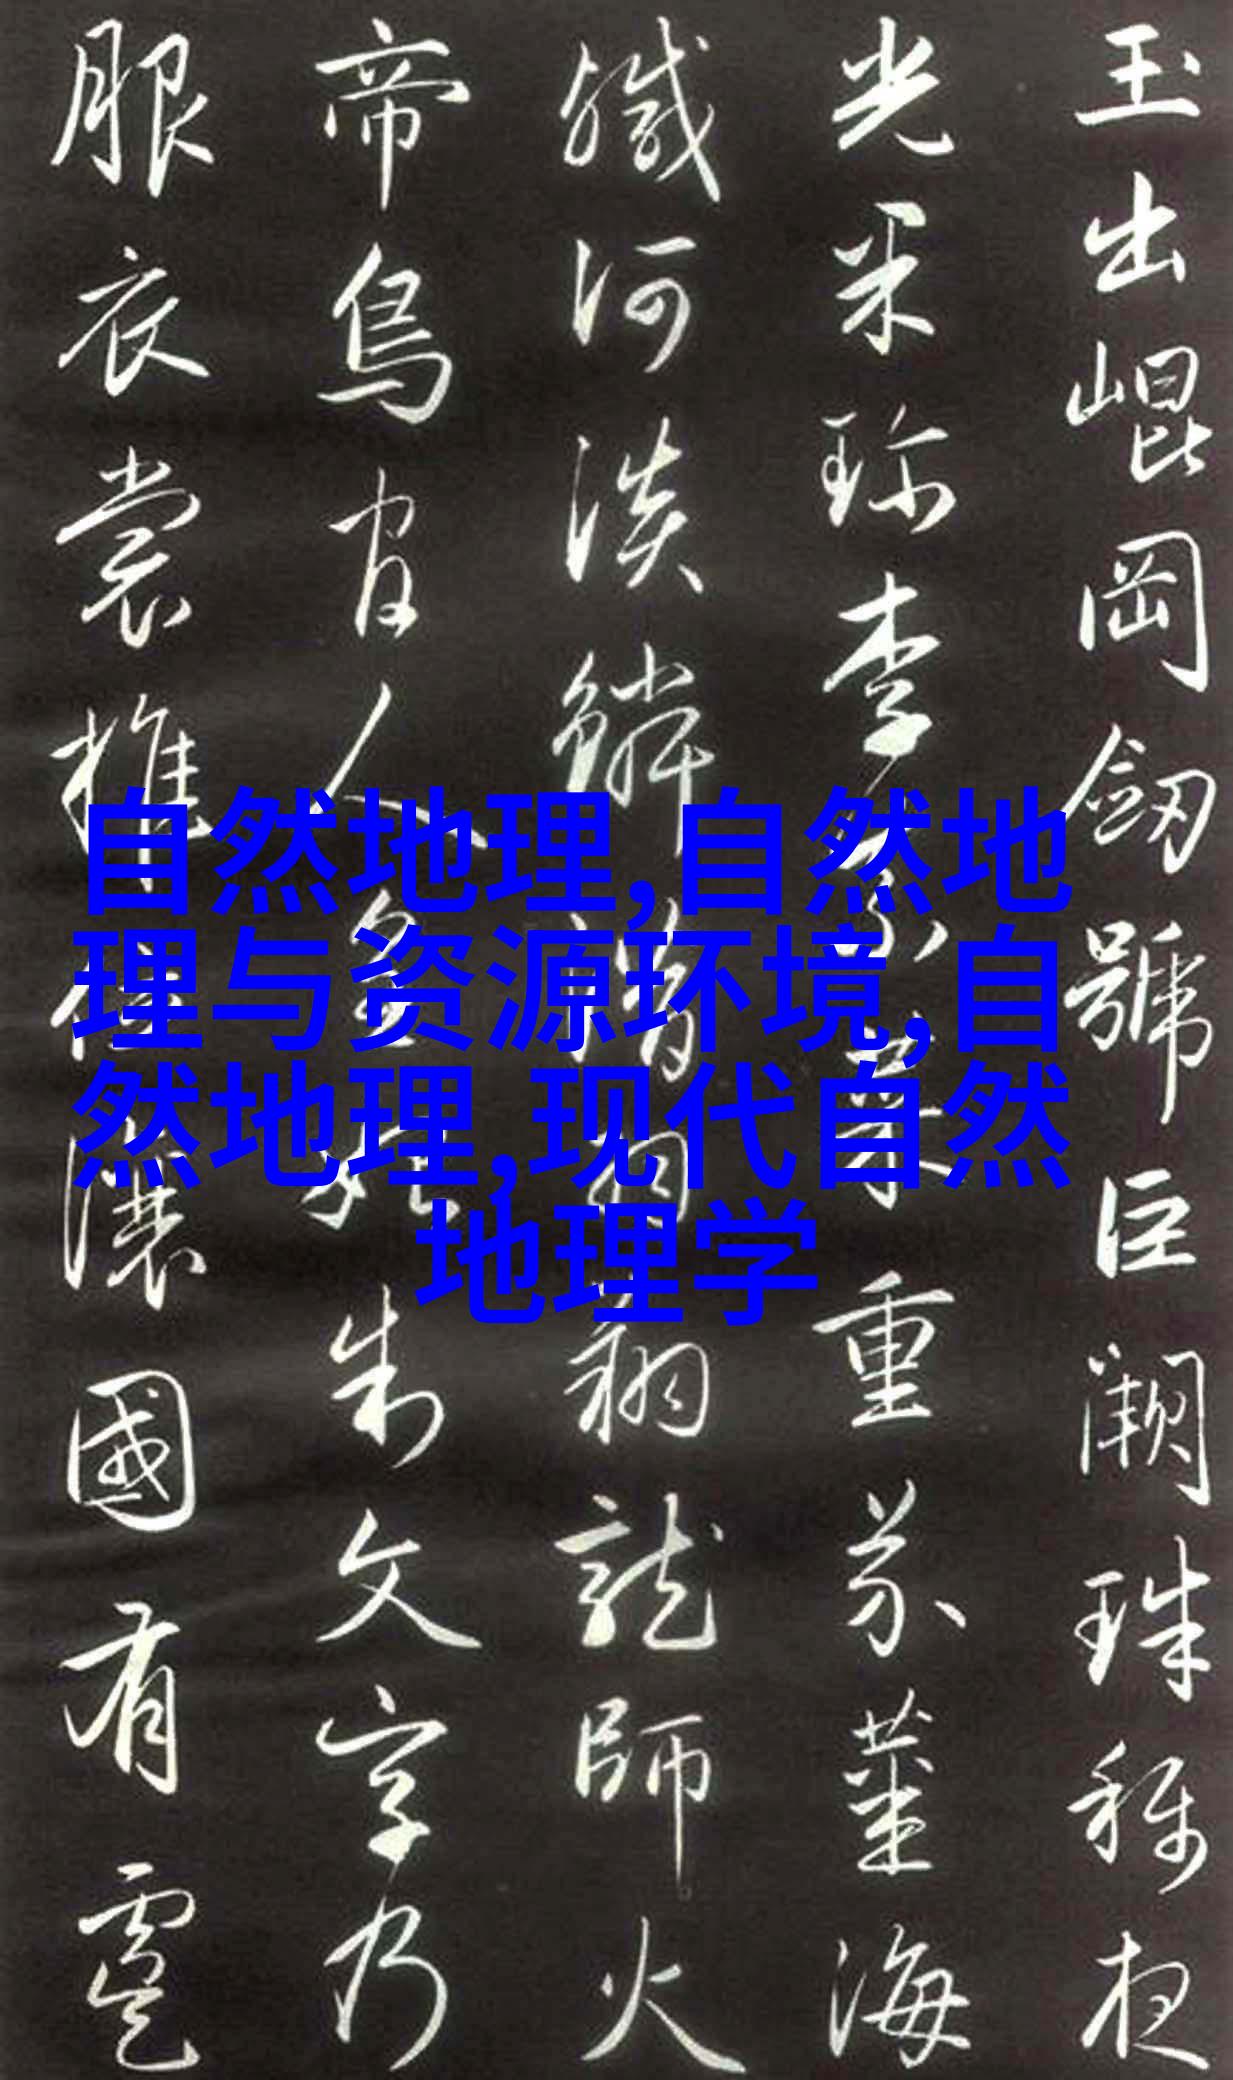 自然地理,自然地
理与资源环境,自
然地理,现代自然
地理学
玉出崐岡劒號巨闕珠称夜
光果珍李柰菜重芥薑海
鹹河淡鱗潜羽翔龍師火
帝鳥官人皇始制文字乃
服衣裳推位讓國有虞